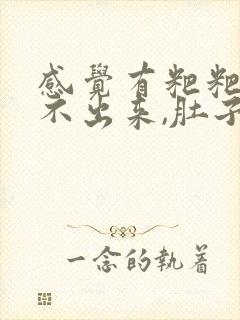 感覺有粑粑
不出来,肚子
一念的執着